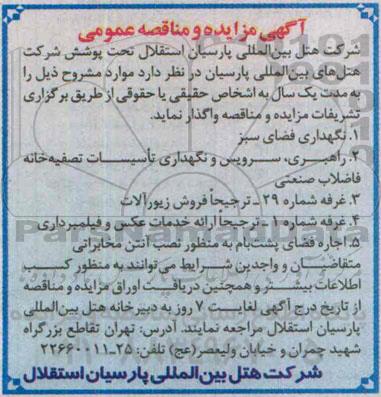 آگهی مزایده و مناقصه عمومی
شرکت هتل بین‌المللی پارسیان استقلال تحت پوشش شرکت
هتل‌های بین‌المللی پارسیان در نظر دارد موارد مشروح ذیل را
به مدت یک سال به اشخاص حقیقی یا حقوقی از طریق برگزاری
تشریفات مزایده و مناقصه واگذار نماید.
۱. نگهداری فضای سبز
۲. راهبری، سرویس و نگهداری تأسیسات تصفیه‌خانه
فاضلاب صنعتی
۳. غرفه شماره ۲۹ ـ ترجیحاً فروش زیورآلات
۴. غرفه شماره ۱ ـ ترجیحاً ارائه خدمات عکس و فیلمبرداری
۵. اجاره فضای پشت‌بام به منظور نصب آنتن مخابراتی
متقاضیان و واجدین شرایط می‌توانند به منظور کسب
اطلاعات بیشتر و همچنین دریافت اوراق مزایده و مناقصه
از تاریخ درج آگهی لغایت ۷ روز به دبیرخانه هتل بین‌المللی
پارسیان استقلال مراجعه نمایند. آدرس: تهران تقاطع بزرگراه
شهید چمران و خیابان ولیعصر(عج) تلفن: ۲۵-۲۲۶۶۰۰۱۱
شرکت هتل بین‌المللی پارسیان استقلال